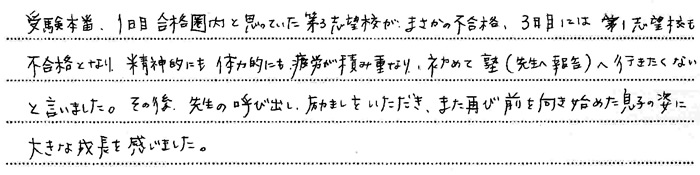 受験本番、1日目 合格圏内と思っていた第3志望校が、まさかの不合格、3日目には 第1志望校も
不合格となり、精神的にも体力的にも疲労が積み重なり、初めて 塾(先生へ報告)へ行きたくない
と言いました。その後、先生の呼び出し、励ましをいただき、また再び前を向き始めた息子の姿に
大きな成長を感じました。